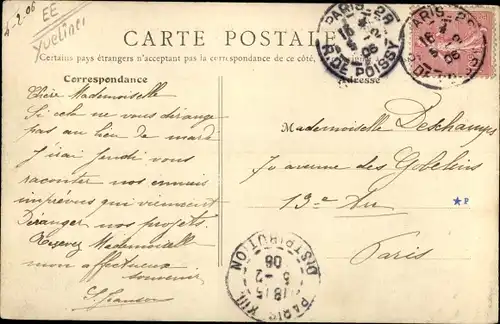 5-2-06
EE
Yvelines
CARTE POSTALE
Certains pays étrangers n'acceptant pas la correspondance de ce côté,
Correspondance
Adresse
PARIS-28
16 5-2 06
R. DE POISSY
PARIS-28
16 5-2 06
Chère Mademoiselle
Si cela ne vous dérange
pas au lieu de mardi
J'irai Jeudi vous
raconter nos ennuis
imprévus qui viennent
Déranger nos projets.
Recevez Mademoiselle
mon affectueux
souvenir
Mademoiselle Deschamps
70 avenue des Gobelins
13e Arr
Paris
★P
DISTRIBUTION
18 15
5-2
06
PARIS XIII